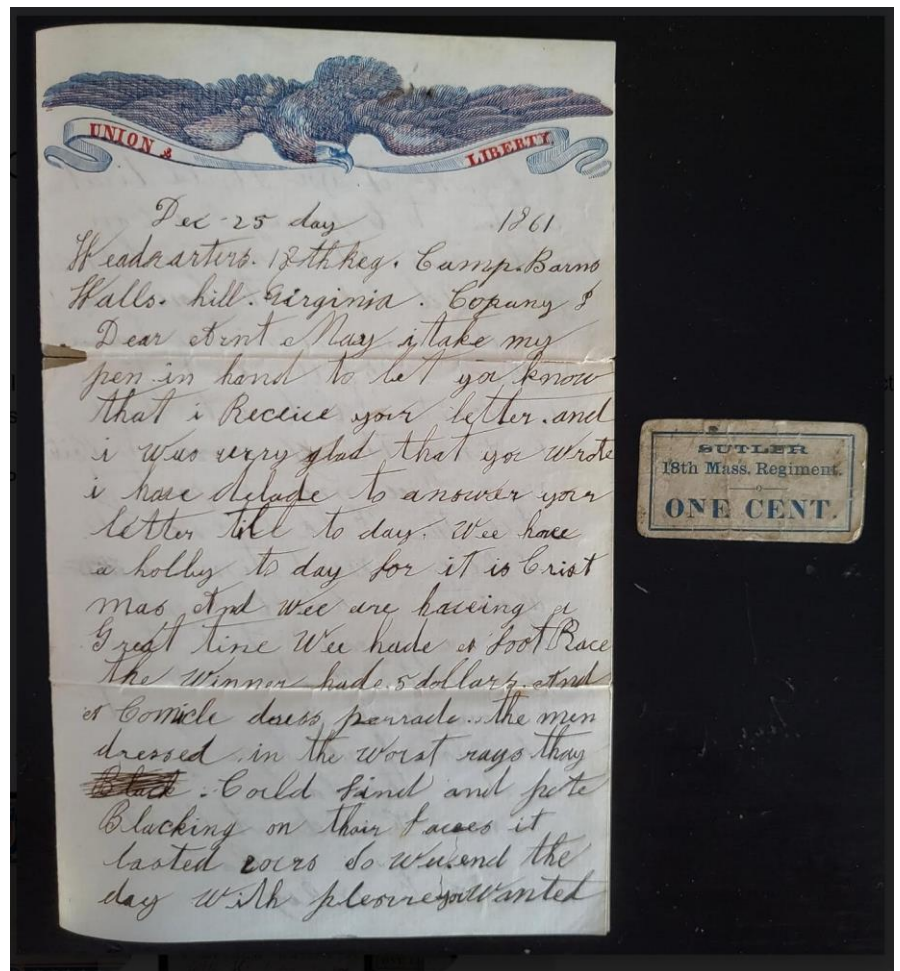 UNION & LIBERTY
Dec 25 day 1861
Headrarters. 18th Reg. Camp. Barns
Halls. hill. Virginia. Copany
Dear Arnt May i take my
pen in hand to let you know
that i Receive your letter. and
i Was verry glad that you Wrote
i have delade to answer your
letter till to day. Wee have
a holby to day for it is Crist
mas And Wee are haveing a
Great time Wee hade a foot Race
the Winner hade 5 dollars. And
a Comicle dress parrade. the men
dressed in the Worst rags thay
Could find and pute
Blacking on thair faces it
lasted So Wee end the
day With you Wanted
SUTLER
18th Mass. Regiment.
ONE CENT.